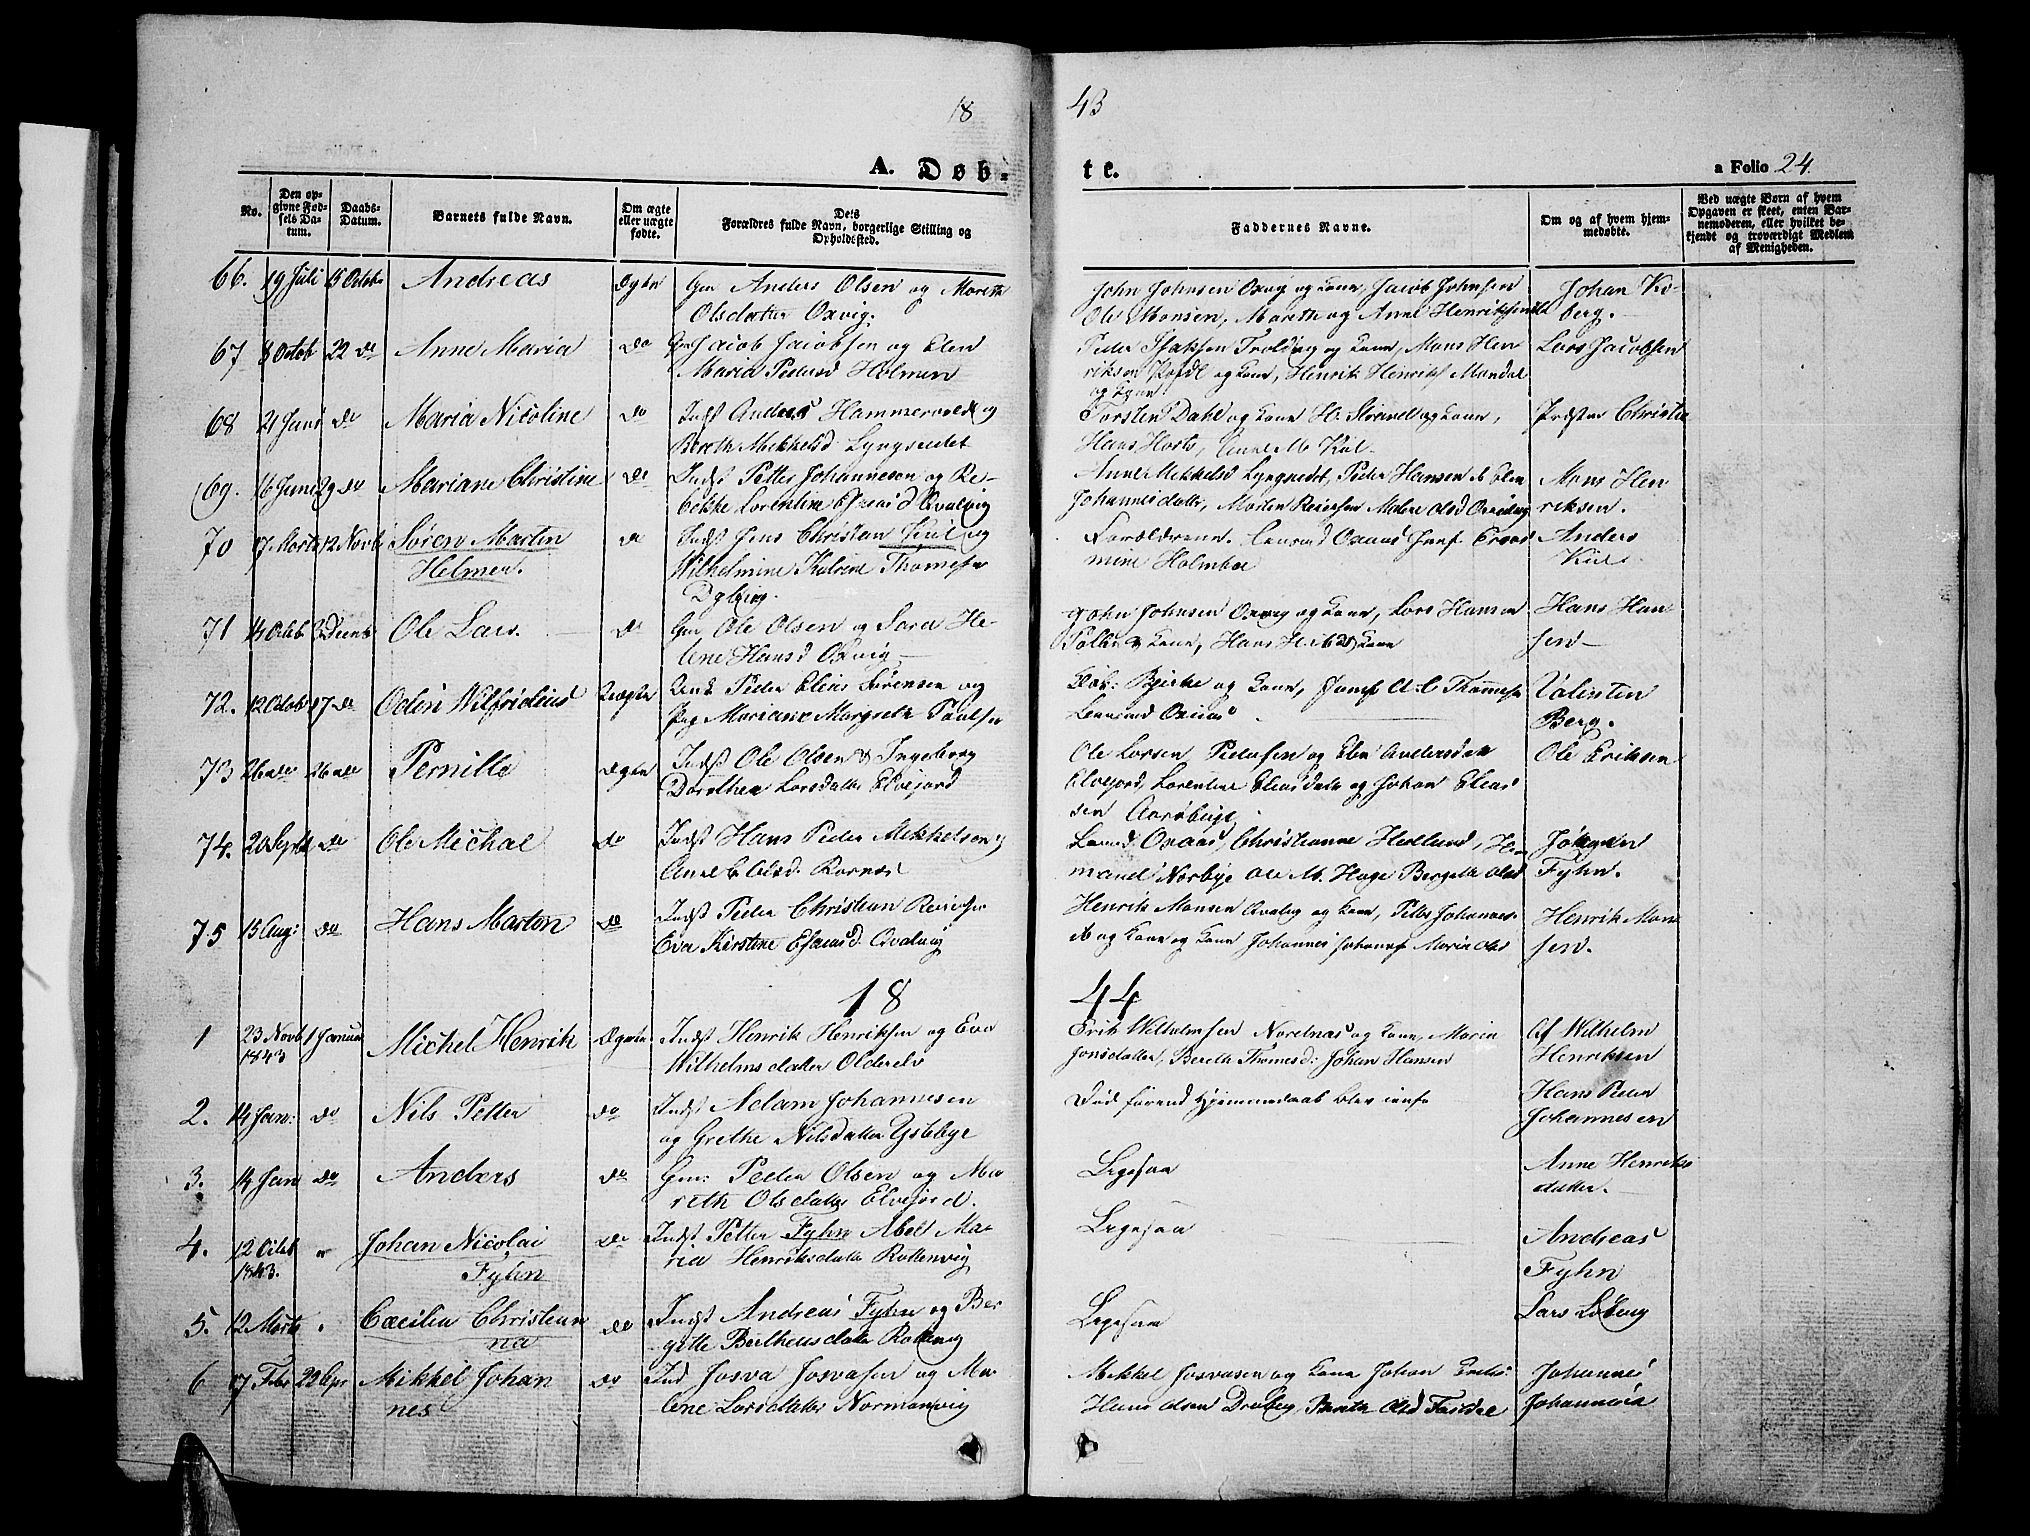 18
43
A. Døb-
te.
a Folio 24.
No.
Den op-
givne Fød-
sels Da-
tum.
Daabs-
Datum.
Barnets fulde Navn.
Om ægte
eller uægte
fødte.
Dets
Forældres fulde Navn, borgerlige Stilling og
Opholdssted.
Faddernes Navne.
Om og af hvem hjem-
medøbte.
Ved uægte Børn af hvem
Opgaven er skeet, enten Bar-
nemoderen, eller hvilket be-
kjendt og troværdigt Medlem
af Menigheden.
66. 19 Juli 15 Octob Andreas Ægte Gm Anders Olsen og Mareth
Olsdatter Oxvig.
John Johnsen Oxvig og Kone, Jacob Johnsen
Ole Monsen, Mareth og Anne Henriksen
Johan Ko-
berg.
67 8 Octob 22 do Anne Maria do Gm Jacob Jacobsen og Elen
Maria Pedersd Holmen
Peder Isaksen Troldvig og Kone, Mons Hen
riksen og Kone, Henrik Henriks Mandal
og Kone
Lars Jacobsen
68 21 Juni do Maria Nicoline do Indst Anders Hammervold og
Bereth Mikkelsd Lyngseidet
Torsten Dahl og Kone H. Strand og Kone,
Hans Horts,
Præsten Christie
69. 16 Juni 29 do Mariane Christine do Indst Petter Johannesen og Re-
bekke Lorentine Esaiasd Kvalvig
Anne Mikkelsd Lyngseidet, Peder Hansen & Elen
Johannesdatter, Morten Reiersen Malene Olsd
Mons Hen
riksen.
70 17 Marts 12 Novb Søren Martin
Helmer.
do Indst Jens Christian Kiil og
Wilhelmine Katrine Thomesen
Forældrene. Lensmd Oxaas Jomf
mine Holmboe
Anders
Kiil.
71 14 Octob 3 Decemb Ole Lars. do Gm Ole Olsen og Sara He-
lene Hansd Oxvig
John Johnsen Oxvig og Kone, Lars Hansen
og Kone, Hans og Kone
Hans Han-
sen
72. 12 Octob 17 do Odin Wilfridius Uægte Unk Peder Elias Sørensen og
Pig Mariane Margrete Paulsen
Bjerke og Kone, Jomf Thomesen
Lensmd Oxaas
Valentin
Berg.
73 26 do 26 do Pernille Ægte Indst Ole Olsen & Ingeborg
Dorothea Larsdatter Elvejord
Ole Larsen Pedersen og Elen Andersdatt
Elvejord, Lorentine Eliasdatt og Johan Elias
sen Aarøbugt
Ole Eriksen
74. 20 Septb do Ole Michal do Indst Hans Peder Mikkelsen og
Ane E Olsd. Rornæs
Lensmd Oxaas, Christianne Hedlund, He-
mand Norbye Ole M. Hage Bergete Olsd
Jørgen
Fyhn.
75 15 Aug: do Hans Morten do Indst Peder Christian Reiersen
Eva Kirstine Esaiasd Qvalvig
Henrik Monsen og Kone, Peder Johannes-
og Kone og Kone Johannes Johannes Marie Olsd
Henrik Mon
sen.
18
44
1 23 Novb
1843
1 Januar Michel Henrik Ægte Indst Henrik Henriksen og Eva
Wilhelmsdatter Olderelv
Erik Wilhelmsen Nordnæs og Kone, Maria
Jonsdatter, Bereth Thomesd: Johan Hansen
Af Wilhelm
Henriksen
2. 14 Jan: do Nils Petter do Indst Adam Johannesen
og Grethe Nilsdatter Ystebye
Død førend Hjemmedaab blev
Hans Peder
Johannesen
3. 14 Jan do Anders do Gm: Peder Olsen og Ma
reth Olsdatter Elvejord.
Ligesaa
Anne Henriks
datter.
4. 12 Octob
1843.
" Johan Nicolai
Fyhn
do Indst Petter Fyhn Abel Ma-
ria Henriksdatter Rottenvig
Ligesaa
Andreas
Fyhn
5. 12 Marts " Cæcilia Christian
na
do Indst Andreas Fyhn og Ber
gitte Bertheusdatter Rottenvig
Ligesaa
Lars
6 17 Febr 22 Apr Mikkel Johan
nes
do Ind Josva Josvasen og Ma-
lene Larsdatter Normanvig
Mikkel Josvasen og Kone Johan Eriks:
Hans Olsen Bereth Olsd
Johannes
Johannesen